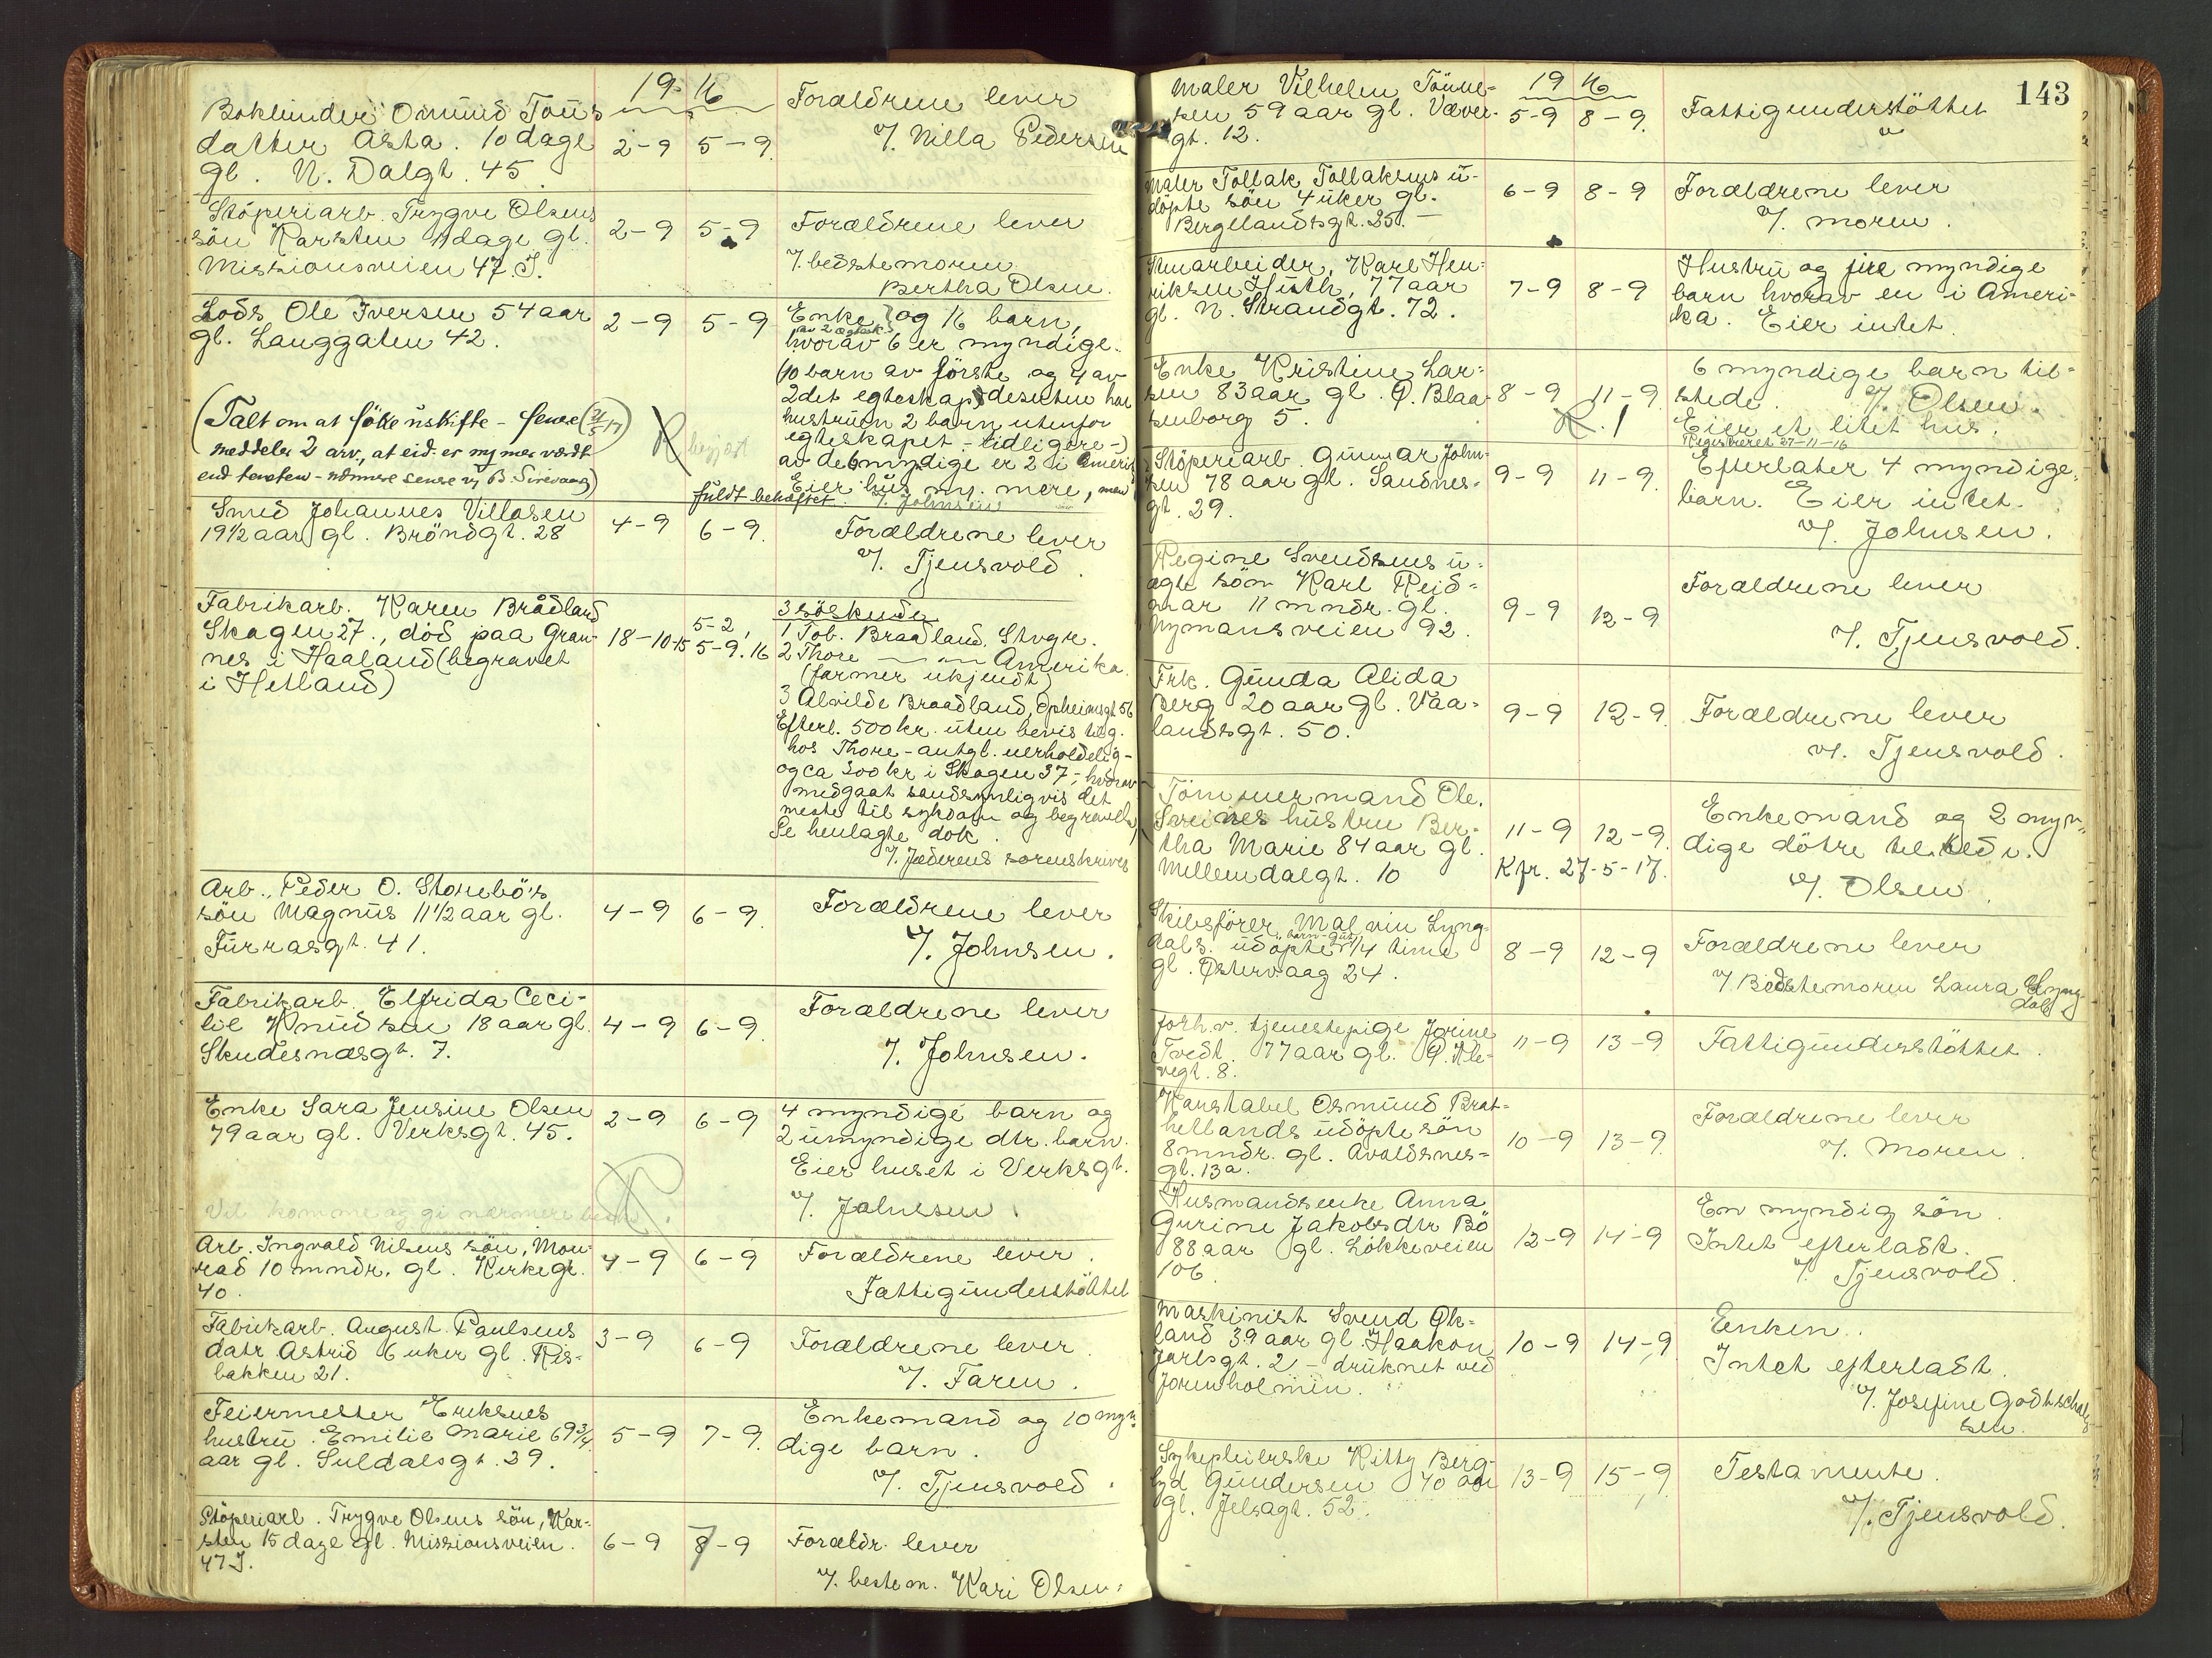 19 16
Boktrinder Omund Tous
datter Asta. 10 dage
gl. N. Dalgt. 45
2-9 5-9
Forældrene lever
v/. Nilla Pedersen
Stöperiarb. Trygve Olsens
sön Karsten 11 dage gl.
Missionsveien 47 J.
2-9 5-9
Forældrene lever
v/. bedstemoren
Bertha Olsen.
Lods Ole Iversen 54 aar
gl. Langgaten 42.
2-9 5-9
(Talt om at söke uskifte -
meddeler 2 arv, at eid. er my mer værdt
end taksten -
Enke og 16 barn,
av 2 egtesk.
hvorav 6 er myndige.
(10 barn av förste og 4 av
2det egteskap, desuten har
hustruen 2 barn utenfor
egteskapet - tidligere -)
av de 6 myndige er 2 i Amerika
Eier hus my. mere, men
fuldt behæftet. v/. Johnsen
Smed Johannes Villasen
19 1/2 aar gl. Bröndgt. 28
4-9 6-9.
Forældrene lever
v/. Tjensvold.
Fabrikarb. Karen Brådland
Skagen 27., död paa Gran-
nes i Haaland (begravet
i Hetland)
18-10-15 5-9.16
5-2,
3 söskende
1 Tob. Braadland, Stvgr.
2 Thore — — Amerika.
(farmer ukjendt)
3 Alvilde Braadland, Opheimsgt 56
Efterl. 500 kr. uten bevis tilg.
hos Thore - antgl. uerholdelig -
og ca 300 kr i Skagen 37, - hvorav
medgaat sandsynligvis det
meste til sykdom og begravelse
Se henlagte dok.
v/. Jæderens sorenskriver
Arb. Peder O. Stonebö's
sön Magnus 11 1/2 aar gl.
Furrasgt. 41.
4-9 6-9.
Forældrene lever
v/. Johnsen.
Fabrikarb. Elfrida Ceci-
lie Knudsen 18 aar gl.
Skudesnæsgt. 7.
4-9 6-9.
Forældrene lever
v/. Johnsen.
Enke Sara Jensine Olsen
79 aar gl. Verksgt. 45.
2-9 6-9
4 myndige barn og
2 umyndige dtr. barn.
Eier huset i Verksgt.
v/. Johnsen.
Vil komme og gi nærmere besk.
Arb. Ingvald Nilsens sön, Mon-
rad 10 mndr. gl. Kirkegt.
40.
4-9 6-9
Forældrene lever.
Fattigunderstöttet
Fabrikarb. August Paulsens
datr Astrid 6 uker gl. Ris-
bakken 21.
3-9 6-9
Forældrene lever.
v/. Faren.
Feiermester Eriksens
hustru Emilie Marie 69 3/4
aar gl. Suldalsgt. 29.
5-9 7-9.
Enkemand og 10 myn-
dige barn.
v/. Tjensvold.
Stöperiarb. Trygve Olsens sön, Kar-
sten 15 dage gl. Missionsveien.
47 J.
6-9 7-9
Forældr. lever
v/. bestem. Kari Olsen.
143
19 16
Maler Vilhelm Tönne-
sen 59 aar gl. Væver-
gt. 12.
5-9 8-9.
Fattigunderstöttet
Maler Tollak Tollaksens u-
döpte sön 4 uker gl.
Bergelandsgt. 25.
6-9 8-9
Forældrene lever
v/. moren.
Karl Hen-
riksen Husth, 77 aar
gl. N. Strandgt. 72.
7-9 8-9
Hustru og fire myndige
barn hvorav en i Ameri-
ka. Eier intet.
Enke Kristine Lar-
sen 83 aar gl. Ø. Blaa-
senborg 5.
8-9 11-9.
R. !
6 myndige barn til-
stede. v/. Olsen.
Eier et litet hus.
Registreret 27-11-16
Stöperiarb. Gunnar John-
sen 78 aar gl. Sandnes-
gt. 29.
9-9 11-9.
Efterlater 4 myndige
barn. Eier intet.
v/. Johnsen.
Regine Svendsens u-
ægte sön Karl Reid-
mar 11 mndr. gl.
Nymansveien 92.
9-9 12-9
Forældrene lever
v/. Tjensvold.
Frk. Gunda Alida
Berg 20 aar gl. Vaa-
landsgt. 50.
9-9 12-9.
Forældrene lever
v/. Tjensvold.
Tömmermand Ole
Sveines hustru Ber-
tha Marie 84 aar gl.
Mellemdalgt. 10
11-9 12-9.
Kfr. 27-5-17.
Enkemand og 2 myn-
dige dötre tilstede.
v/. Olsen.
Skibsförer Malvin Lyng-
dals udöpte barn-gut 1/4 time
gl. Østervaag 24.
8-9 12-9
Forældrene lever
v/ Bedstemoren Laura Lyng-
dal
forh.v. tjenestepige Jorine
Tvedt. 77 aar gl. Ø. Kle-
vegt. 8.
11-9 13-9
Fattigunderstöttet.
Konstabel Osmund Brat-
hetlands udöpte sön
8 mndr. gl. Avaldsnes-
gt. 13a.
10-9 13-9.
Forældrene lever
v/. Moren.
Husmandsenke Anna
Gurine Jakobsdtr Bö
88 aar gl. Lökkeveien
106.
12-9 14-9
En myndig sön
Intet efterladt.
v/. Tjensvold.
Maskinist Svend Øk-
land 39 aar gl. Haakon
Jarlsgt. 2 - druknet ved
Jorenholmen.
10-9 14-9
Enken.
Intet efterladt.
v/. Josefine Godtschal-
sen.
Sykepleierske Kitty Berg-
lyd Gundersen 40 aar
gl. Jelsagt. 52.
13-9 15-9
Testamente.
v/. Tjensvold.